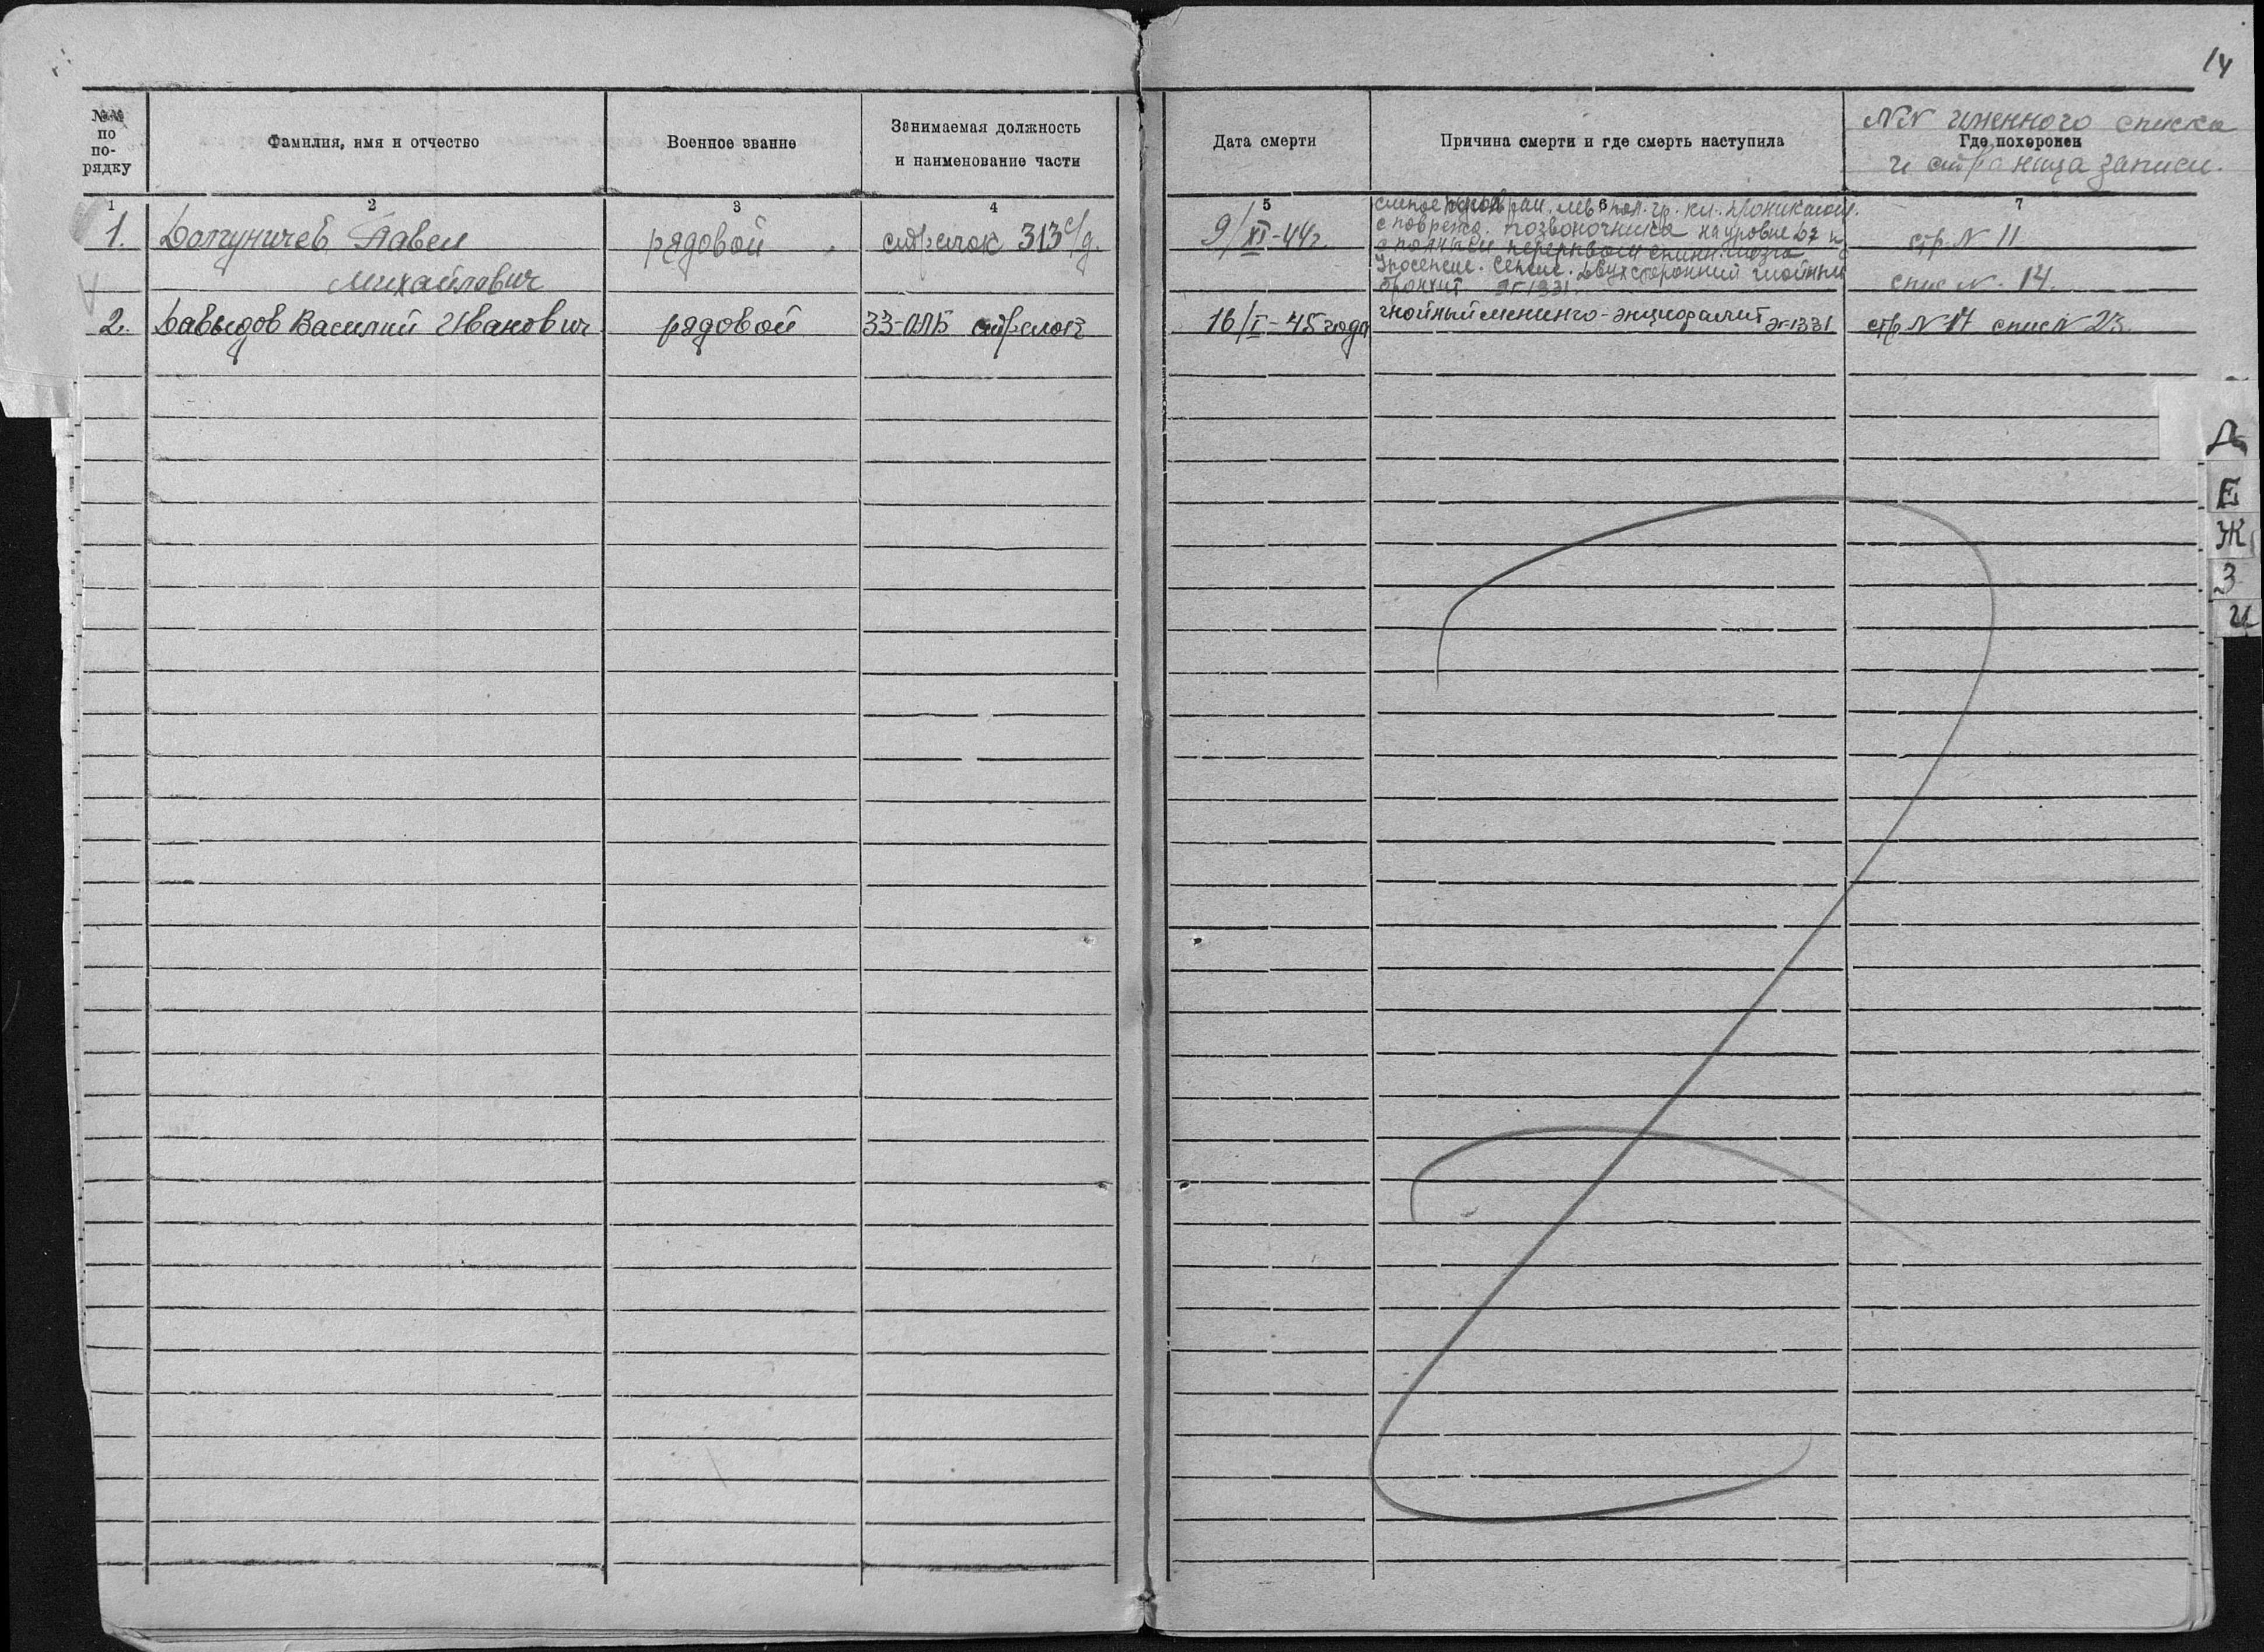 14
№№ по по- рядку
Фамилия, имя и отчество
Военное звание
Занимаемая должность
и наименование части
Дата смерти
Причина смерти и где смерть наступила
NN именного списка
Где похоронен
и страница записи.
1 2 3 4 5 6 7
1. Долгуничев Павел
Михайлович
рядовой
стрелок 313 с/д.
9/XI-44г.
слепое ран. лев. пол. гр. кл. проникающ.
с поврежд. позвоночника на уровне D7 и
с полным перерывом спинн. мозга
Уросепсис. Сепсис. Двухсторонний гнойный
бронхит ЭГ 1331.
стр. N 11
спис N. 14.
2. Давыдов Василий Иванович
рядовой
33-ОЛБ стрелок
16/I-45 года
гнойный менинго-энцифалит ЭГ-1331
стр. N 17 спис N 23.
Д
Е
Ж
З
И